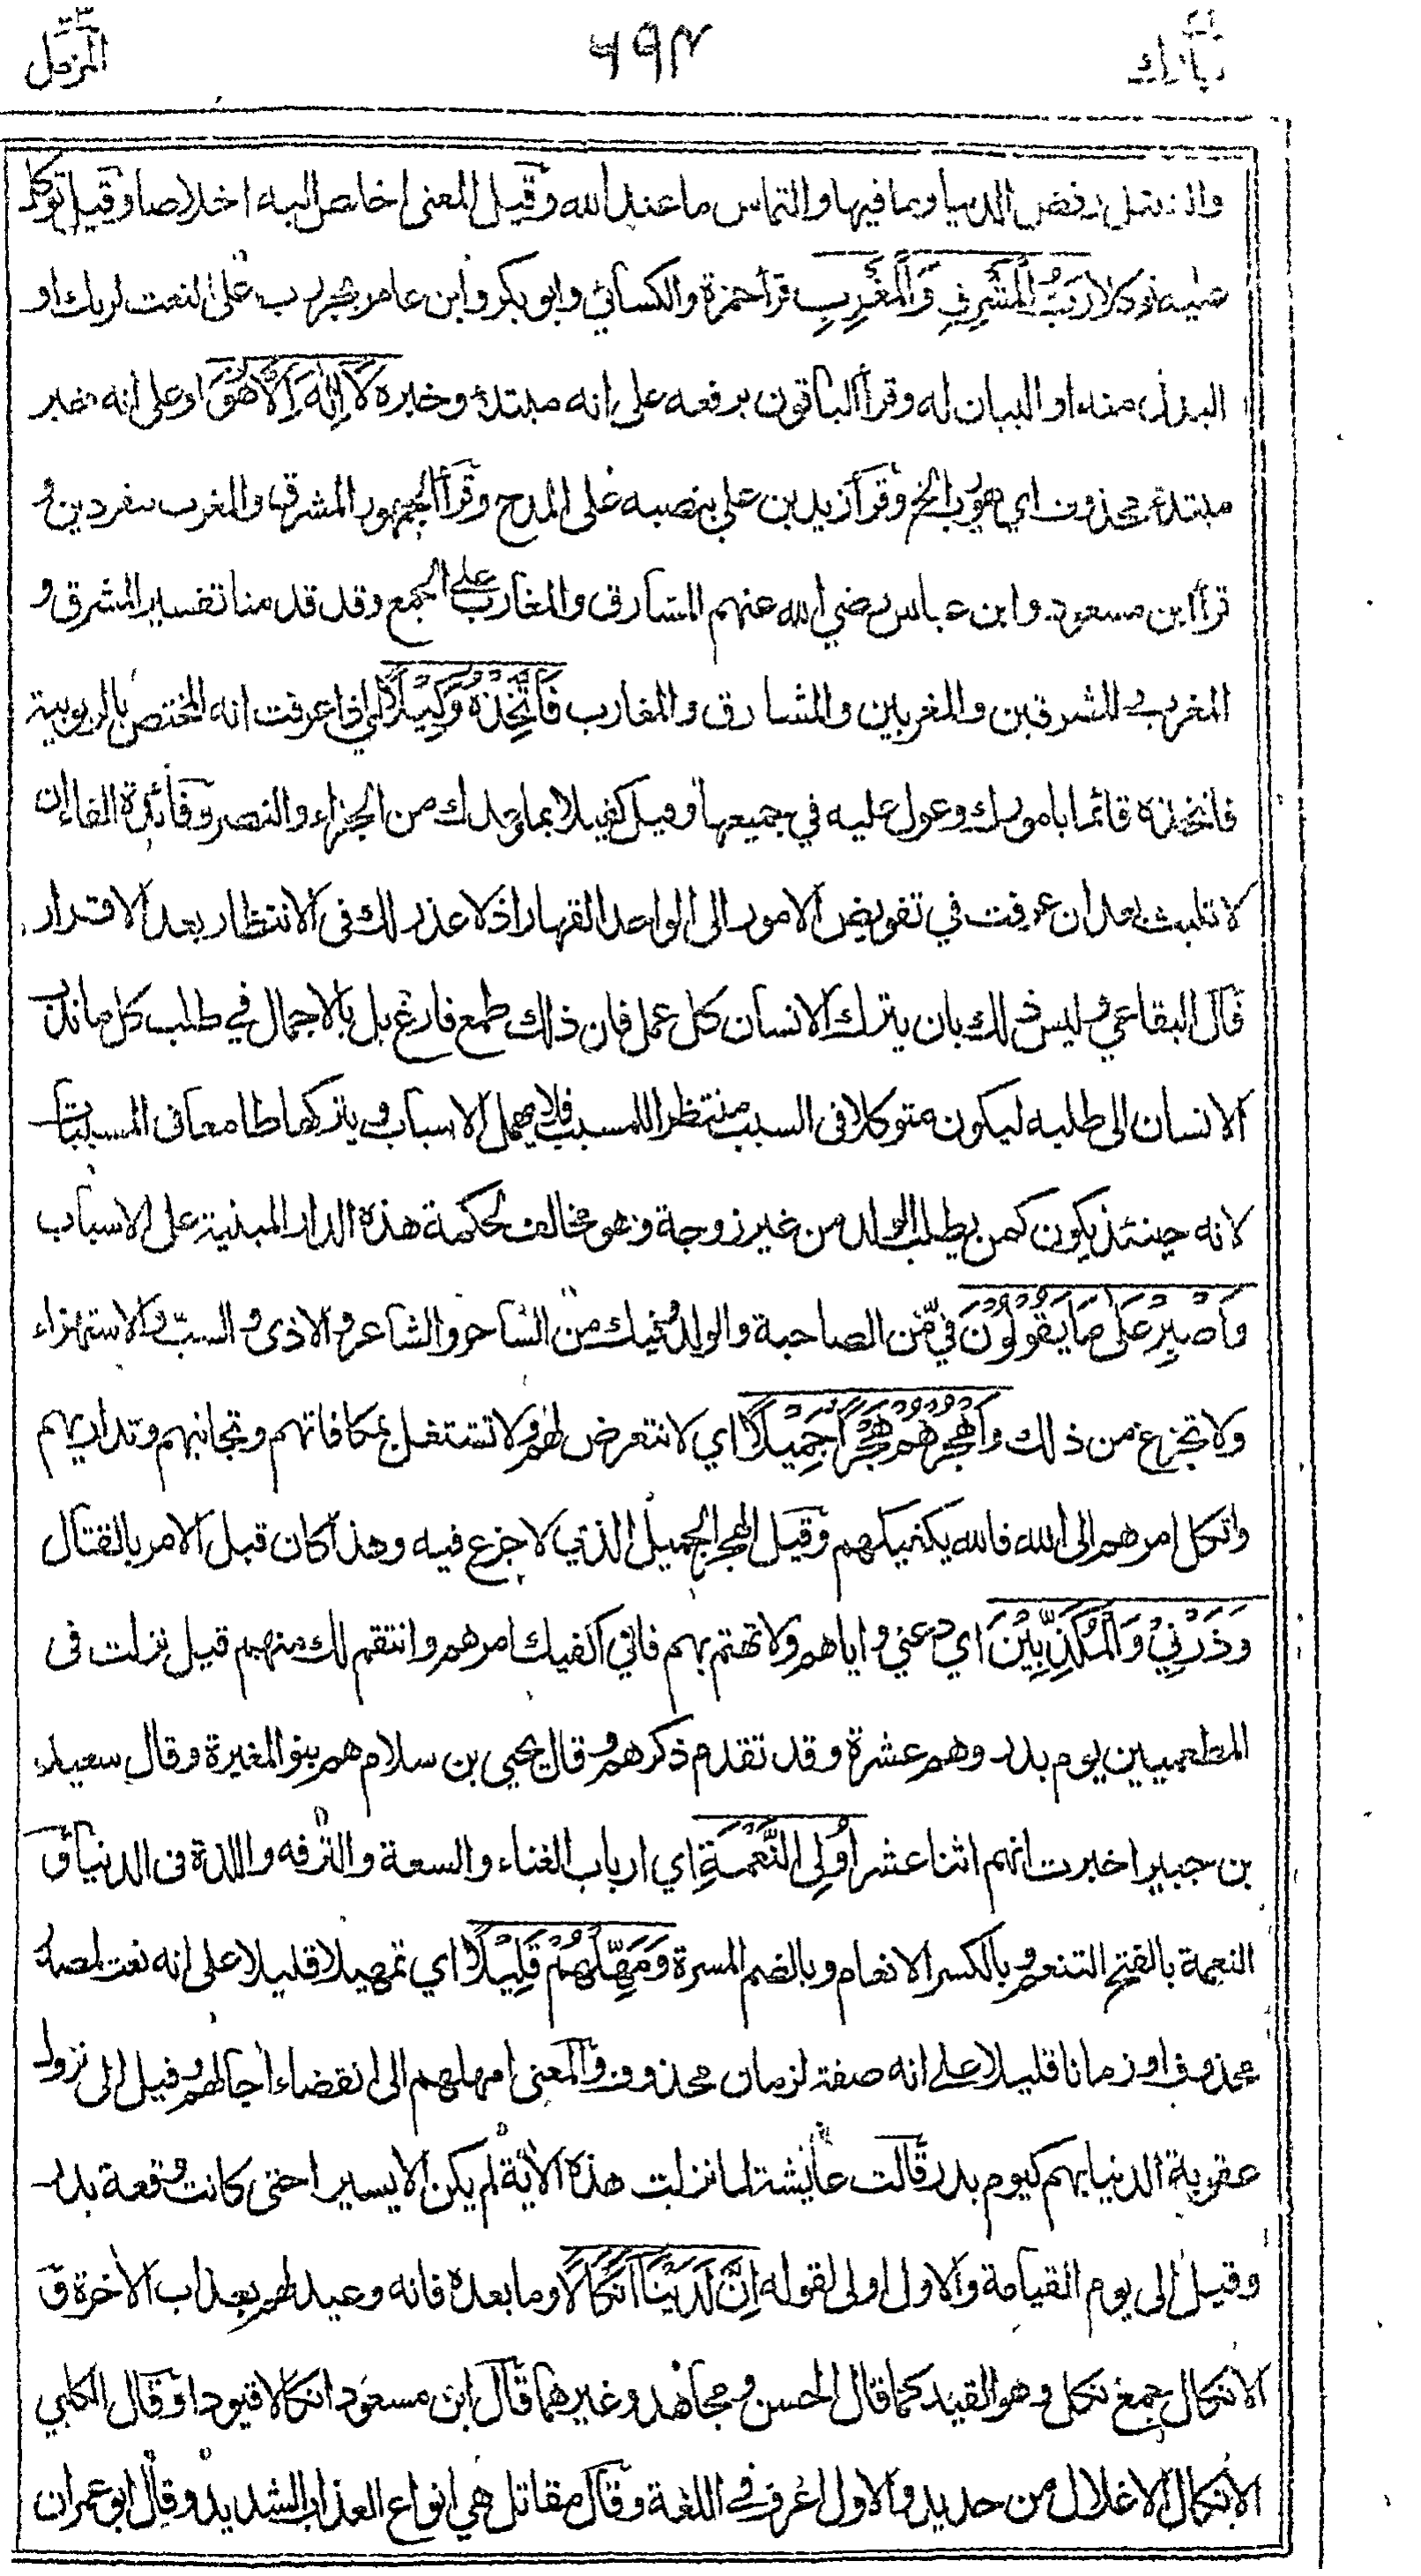 تبارك
٦٩٢
المزمل
والتبتل رفض الدنيا وما فيها والتماس ما عند الله وقيل المعنى اخلص اليه اخلاصا وقيل توكل
عليه توكلا رَبُّ الْمَشْرِقِ وَالْمَغْرِبِ قرأ حمزة والكسائي وابو بكر وابن عامر بجر رب على النعت لربك او
البدل منه او البيان له وقرأ الباقون برفعه على انه مبتدأ وخبره لَا إِلٰهَ إِلَّا هُوَ او على انه خبر
مبتدء محذوف اي هو رب الخ وقرأ زيد بن علي بنصبه على المدح وقرأ الجمهور المشرق والمغرب مفردين و
قرأ ابن مسعود وابن عباس رضي الله عنهم المشارق والمغارب على الجمع وقد قدمنا تفسير المشرق و
المغرب والمشرقين والمغربين والمشارق والمغارب فَاتَّخِذْهُ وَكِيْلًا اي اذا عرفت انه المختص بالربوبية
فاتخذه قائما بامورك وعول عليه في جميعها وقيل كفيلا بما وعدك من الجزاء والنصر وفائدة الفاء ان
لا تلبث بعد ان عرفت في تفويض الامور الى الواحد القهار اذ لا عذر لك فى الانتظار بعد الاقرار
قال البقاعي وليس ذلك بان يترك الانسان كل عمل فان ذلك طمع فارغ بل بالاجمال في طلب كل ما ندب
الانسان الى طلبه ليكون متوكلا فى السبب منتظرا للمسبب فلا يهمل الاسباب ويتركها طامعا فى المسببات
لانه حينئذ يكون كمن يطلب الولد من غير زوجة وهو مخالف لحكمة هذه الدار المبنية على الاسباب
وَاصْبِرْ عَلٰى مَا يَقُوْلُوْنَ في من الصاحبة والولد وفيك من الساحر والشاعر والاذى والسب والاستهزاء
ولا تجزع من ذلك وَاهْجُرْهُمْ هَجْرًا جَمِيْلًا اي لا تتعرض لهم ولا تشتغل بمكافاتهم وتجانبهم وتداريهم
واتكل امرهم الى الله فالله يكفيكهم وقيل الهجر الجميل الذي لا جزع فيه وهذا كان قبل الامر بالقتال
وَذَرْنِيْ وَالْمُكَذِّبِيْنَ اي دعني واياهم ولا تهتم بهم فاني اكفيك امرهم وانتقم لك منهم قيل نزلت فى
المطعمين يوم بدر وهم عشرة وقد تقدم ذكرهم وقال يحيى بن سلام هم بنو المغيرة وقال سعيد
بن جبير اخبرت انهم اثنا عشر اُولِى النَّعْمَةِ اي ارباب الغناء والسعة والترفه واللذة فى الدنيا و
النعمة بالفتح التنعم وبالكسر الانعام وبالضم المسرة وَمَهِّلْهُمْ قَلِيْلًا اي تمهيلا قليلا على انه نعت لمصدر
محذوف او زمانا قليلا على انه صفة لزمان محذوف والمعنى امهلهم الى انقضاء اجالهم وقيل الى نزول
عقوبة الدنيا بهم كيوم بدر قالت عائشة لما نزلت هذه الاٰية لم يكن الا يسيرا حتى كانت وقعة بدر
وقيل الى يوم القيامة والاول اولى لقوله اِنَّ لَدَيْنَا اَنْكَالًا وما بعده فانه وعيد لهم بعذاب الاٰخرة و
الانكال جمع نكل وهو القيد كما قال الحسن ومجاهد وغيرهما قال ابن مسعود انكالا قيودا وقال الكلبي
الانكال الاغلال من حديد والاول اعرف في اللغة وقال مقاتل هي انواع العذاب الشديد وقال ابو عمران